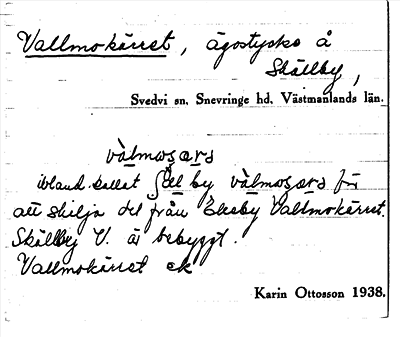 Vallmokärret, ägostycke å
Skällby,
Svedvi sn. Snevringe hd. Västmanlands län.
vàlmoʂæʀɹ
ibland kallat ʃæl by vàlmoʂæʀɹ för
att skilja det från Ekeby Vallmokärret.
Skällby V. är bebyggt.
Vallmokärret ek
Karin Ottosson 1938.